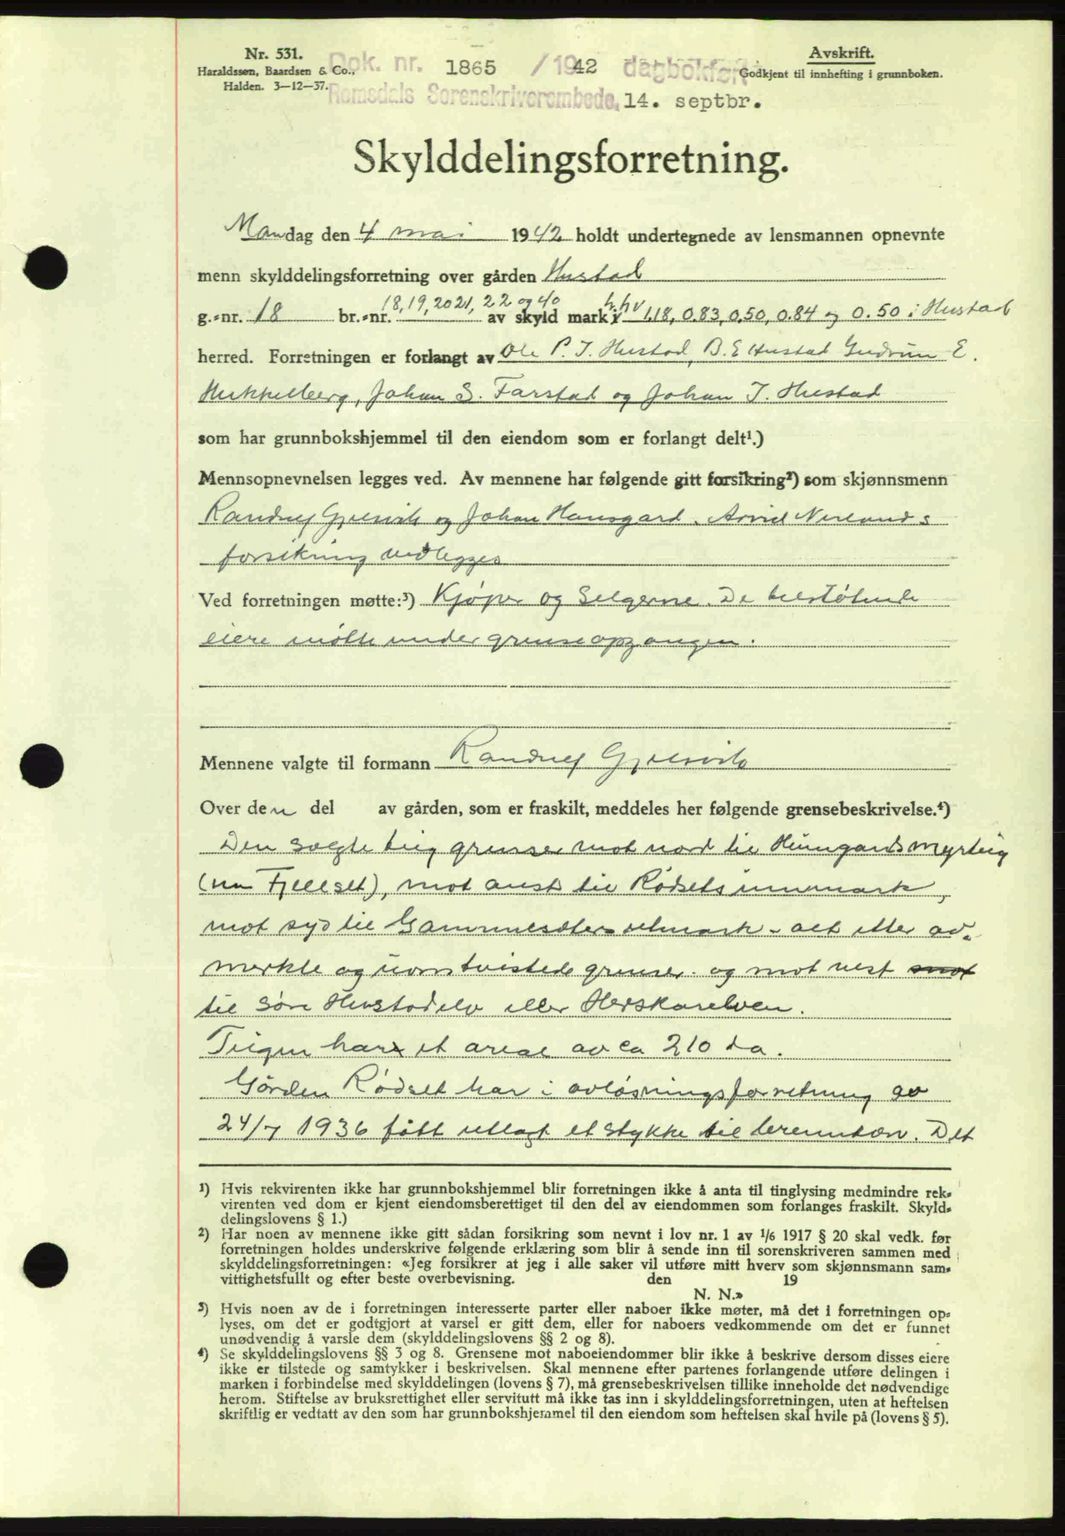 Nr. 531.
Haraldssen, Baardsen & Co.,
Halden. 3—12—37.
Dok. nr. 1865 /1942 dagbokført
Romsdals Sorenskriverembede, 14. septbr.
Avskrift.
Godkjent til innhefting i grunnboken.
Skylddelingsforretning.
Mandag den 4 mai 1942 holdt undertegnede av lensmannen opnevnte
menn skylddelingsforretning over gården Hustad
g.-nr. 18 br.-nr. 18, 19, 20 21, 22 og 40 av skyld mark 1.18, 0.83, 0.50, 0.84 og 0.50 i Hustad
herred. Forretningen er forlangt av Ole P. J. Hustad, B. E Hustad Gudrun E.
Hukkelberg, Johan S. Farstad og Johan J. Hustad
som har grunnbokshjemmel til den eiendom som er forlangt delt¹.)
Mennsopnevnelsen legges ved. Av mennene har følgende gitt forsikring²) som skjønnsmenn
Randulf Gjelsvik og Johan Hausgard. Arvid Nerlands
forsikring vedlegges
Ved forretningen møtte:³) Kjøper og Selgerne. De tilstøtende
eiere møtte under grenseopgangen.
Mennene valgte til formann Randulf Gjelsvik
Over den del av gården, som er fraskilt, meddeles her følgende grensebeskrivelse.⁴)
Den solgte teig grenser mot nord til Heimgardsmyrteig
(nu Fjellset), mot aust til Rødsets innmark,
mot syd til Gammesæters utmark - alt etter op-
merkte og uomtvistede grenser og mot vest mot
til Søre Hustadelv eller Herskarelven.
Teigen har et areal av ca 210 da.
Gården Rødset har i avløsningsforretning av
24/7 1936 fått utlagt et stykke til brenntorv. Det
¹) Hvis rekvirenten ikke har grunnbokshjemmel blir forretningen ikke å anta til tinglysing medmindre rek-
virenten ved dom er kjent eiendomsberettiget til den del av eiendommen som forlanges fraskilt. Skyld-
delingslovens § 1.)
²) Har noen av mennene ikke gitt sådan forsikring som nevnt i lov nr. 1 av 1/6 1917 § 20 skal vedk. før
forretningen holdes underskrive følgende erklæring som blir å sende inn til sorenskriveren sammen med
skylddelingsforretningen: «Jeg forsikrer at jeg i alle saker vil utføre mitt hverv som skjønnsmann sam-
vittighetsfullt og efter beste overbevisning. den 19
N. N.»
³) Hvis noen av de i forretningen interesserte parter eller naboer ikke møter, må det i forretningen op-
lyses, om det er godtgjort at varsel er gitt dem, eller for naboers vedkommende om det er funnet
unødvendig å varsle dem (skylddelingslovens §§ 2 og 8).
⁴) Se skylddelingslovens §§ 3 og 8. Grensene mot naboeiendommer blir ikke å beskrive dersom disses eiere
ikke er tilstede og samtykker i beskrivelsen. Skal mennene efter partenes forlangende utføre delingen i
marken i forbindelse med skylddelingen (lovens § 7), må grensebeskrivelsen tillike inneholde det nødvendige
herom. Stiftelse av bruksrettighet eller servitutt må ikke tas inn i skylddelingsforretningen, uten at heftelsen
skriftlig er vedtatt av den som har grunnbokshjemmel til den eiendom som heftelsen skal hvile på (lovens § 5).